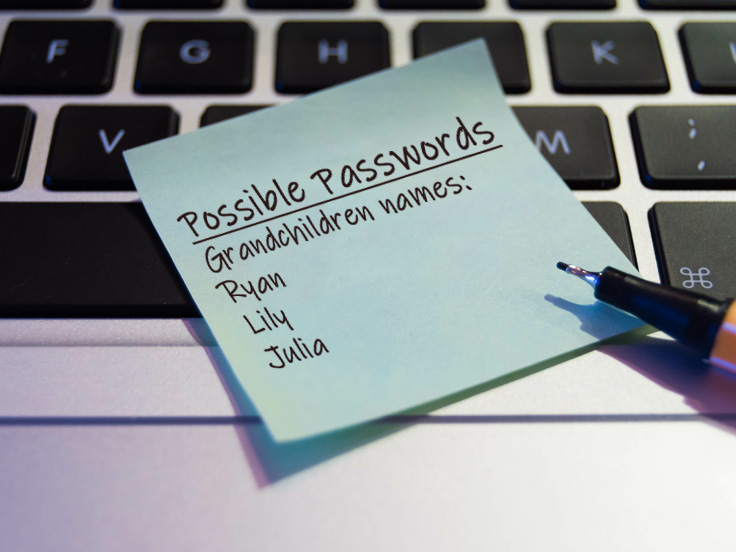 F G H K
V M ; ,
⌘
Possible Passwords
Grandchildren names:
Ryan
Lily
Julia